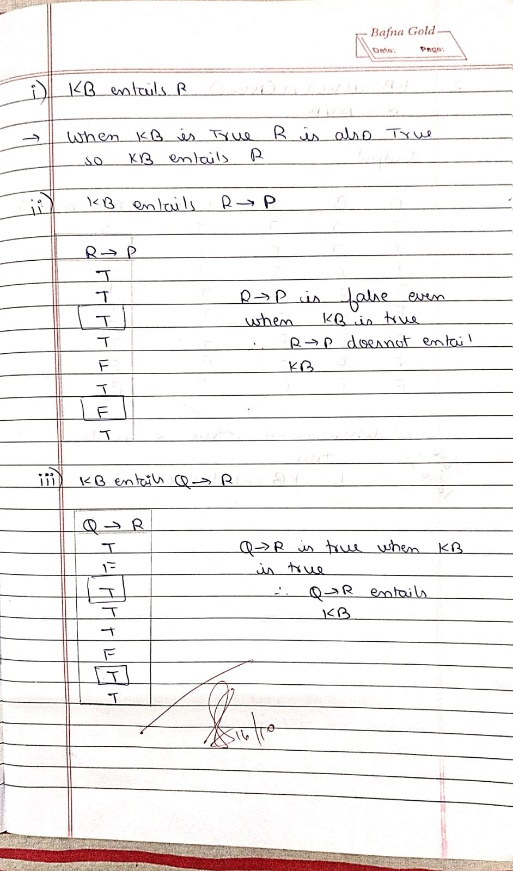 Bafna Gold
Date: Page:
i) KB entails R
→ When KB is True R is also True
so KB entails R
ii) KB entails R → P
R → P
T
T
T
T
F
T
F
T
R → P is false even
when KB is true
∴ R → P doesnot entail
KB
iii) KB entails Q → R
Q → R
T
F
T
T
T
F
T
T
Q → R is true when KB
is true
∴ Q → R entails
KB
16/10